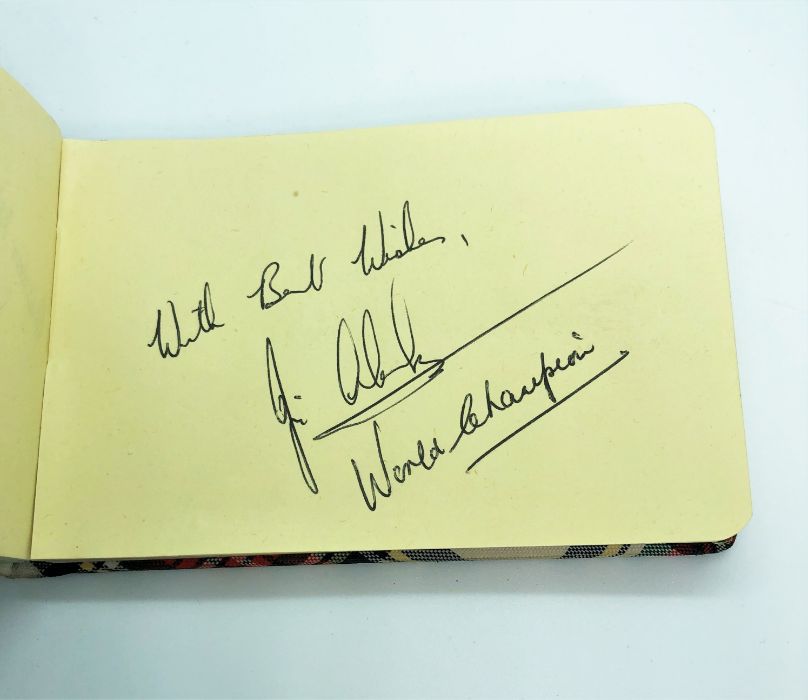 With Best Wishes,
Jim Clark
World Champion.